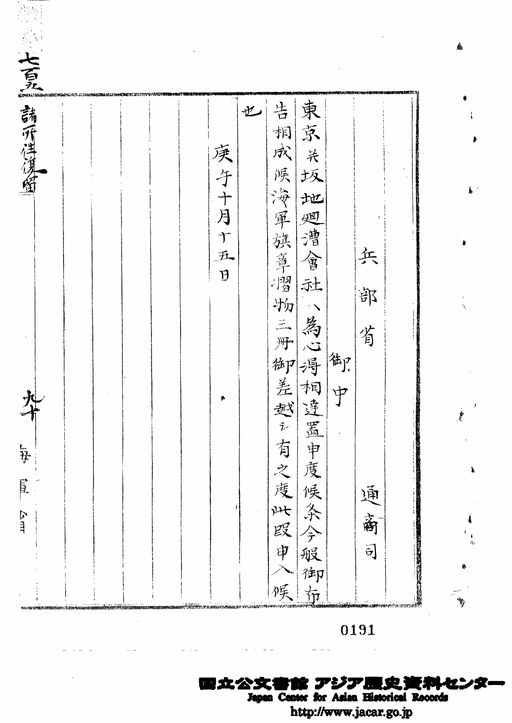 兵部省
通商司
御中
東京并坂地廻漕會社ヘ為心得相達置申度候条今般御布
告相成候海軍旗章摺物三冊御差越シ有之度此段申入候
也
庚午十月十五日
諸所往復留
九十
海軍省
0191
国立公文書館 アジア歴史資料センター
Japan Center for Asian Historical Records
http://www.jacar.go.jp